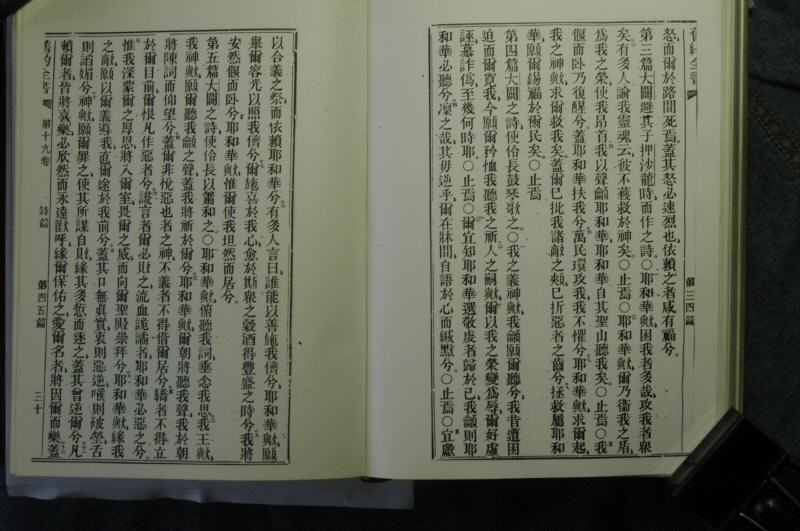 舊約全書
第三四篇
怒而爾於路間死焉蓋其怒必速烈也依賴之者咸有福兮
第三篇大闢避其子押沙龍時而作之詩○耶和華歟困我者多哉攻我者衆
矣有多人論我靈魂云彼不獲救於神矣○止焉○耶和華歟爾乃衞我之盾
爲我之榮使我昂首我以聲籲耶和華耶和華自其聖山聽我矣○止焉○我
偃而卧乃復醒兮蓋耶和華扶我兮萬民環攻我我不懼兮耶和華歟求爾起
我之神歟求爾救我矣蓋爾已批我諸敵之頰已折惡者之齒兮拯救屬耶和
華願爾錫福於爾民矣○止焉
第四篇大闢之詩使伶長鼓琴歌之○我之義神歟我籲願爾聽兮我昔遭困
迫而爾寬我今願爾矜恤我聽我之祈人之嗣歟爾以我之榮變爲辱爾好虛
誣慕詐爲至幾何時耶○止焉○爾宜知耶和華選敬虔者歸於己我籲則耶
和華必聽兮凜之哉其毋逆乎爾在牀間自語於心而緘默兮○止焉○宜獻
以合義之祭而依賴耶和華兮有多人言曰誰能以善施我儕兮耶和華歟願
舉爾容光以照我儕兮爾施喜於我心愈於斯衆之穀酒得豐盛之時兮我將
安然偃而卧兮耶和華歟惟爾使我坦然而居兮
第五篇大闢之詩使伶長以簫和之○耶和華歟俯聽我詞垂念我思我王歟
我神歟願爾聽我籲之聲蓋我將祈於爾兮耶和華歟爾朝將聽我聲我於朝
將陳詞而仰望兮蓋爾非悅惡也者之神不義者不得偕爾居兮驕者不得立
於爾目前爾恨凡作惡者兮謊言者爾必敗之流血詭譎者耶和華必惡之兮
惟我深蒙爾之厚恩將入爾室畏爾之威而向爾聖殿崇拜兮耶和華歟緣我
之敵願爾以爾義導我直爾途於我前兮蓋其口無眞實衷則惡逆喉則破塋舌
則諂媚兮神歟願爾罪之使其所謀自敗緣其多愆而逐之蓋其曾逆爾兮凡
賴爾者皆將喜樂必欣然而永遠歡呼緣爾保佑之愛爾名者將因爾而樂蓋
舊約全書
第十九卷
詩篇
第四五篇
三十